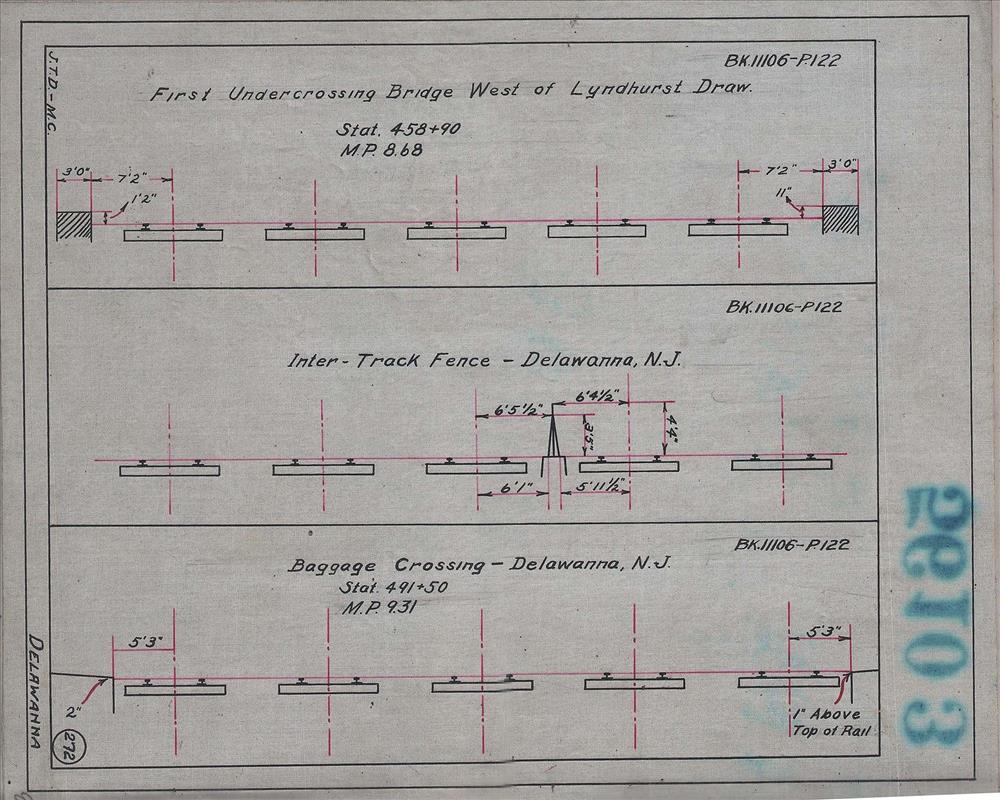 J.T.D.-M.C.
BK.11106-P.122
First Undercrossing Bridge West of Lyndhurst Draw.
Stat. 458+90
M.P. 8.68
3'0" 7'2" 1'2"
7'2" 3'0" 11"
BK.11106-P.122
Inter-Track Fence - Delawanna, N.J.
6'5½" 6'4½"
3'5" 4'4"
6'1" 5'11½"
BK.11106-P.122
Baggage Crossing - Delawanna, N.J.
Stat. 491+50
M.P. 9.31
5'3" 5'3"
2"
1" Above
Top of Rail
DELAWANNA
272